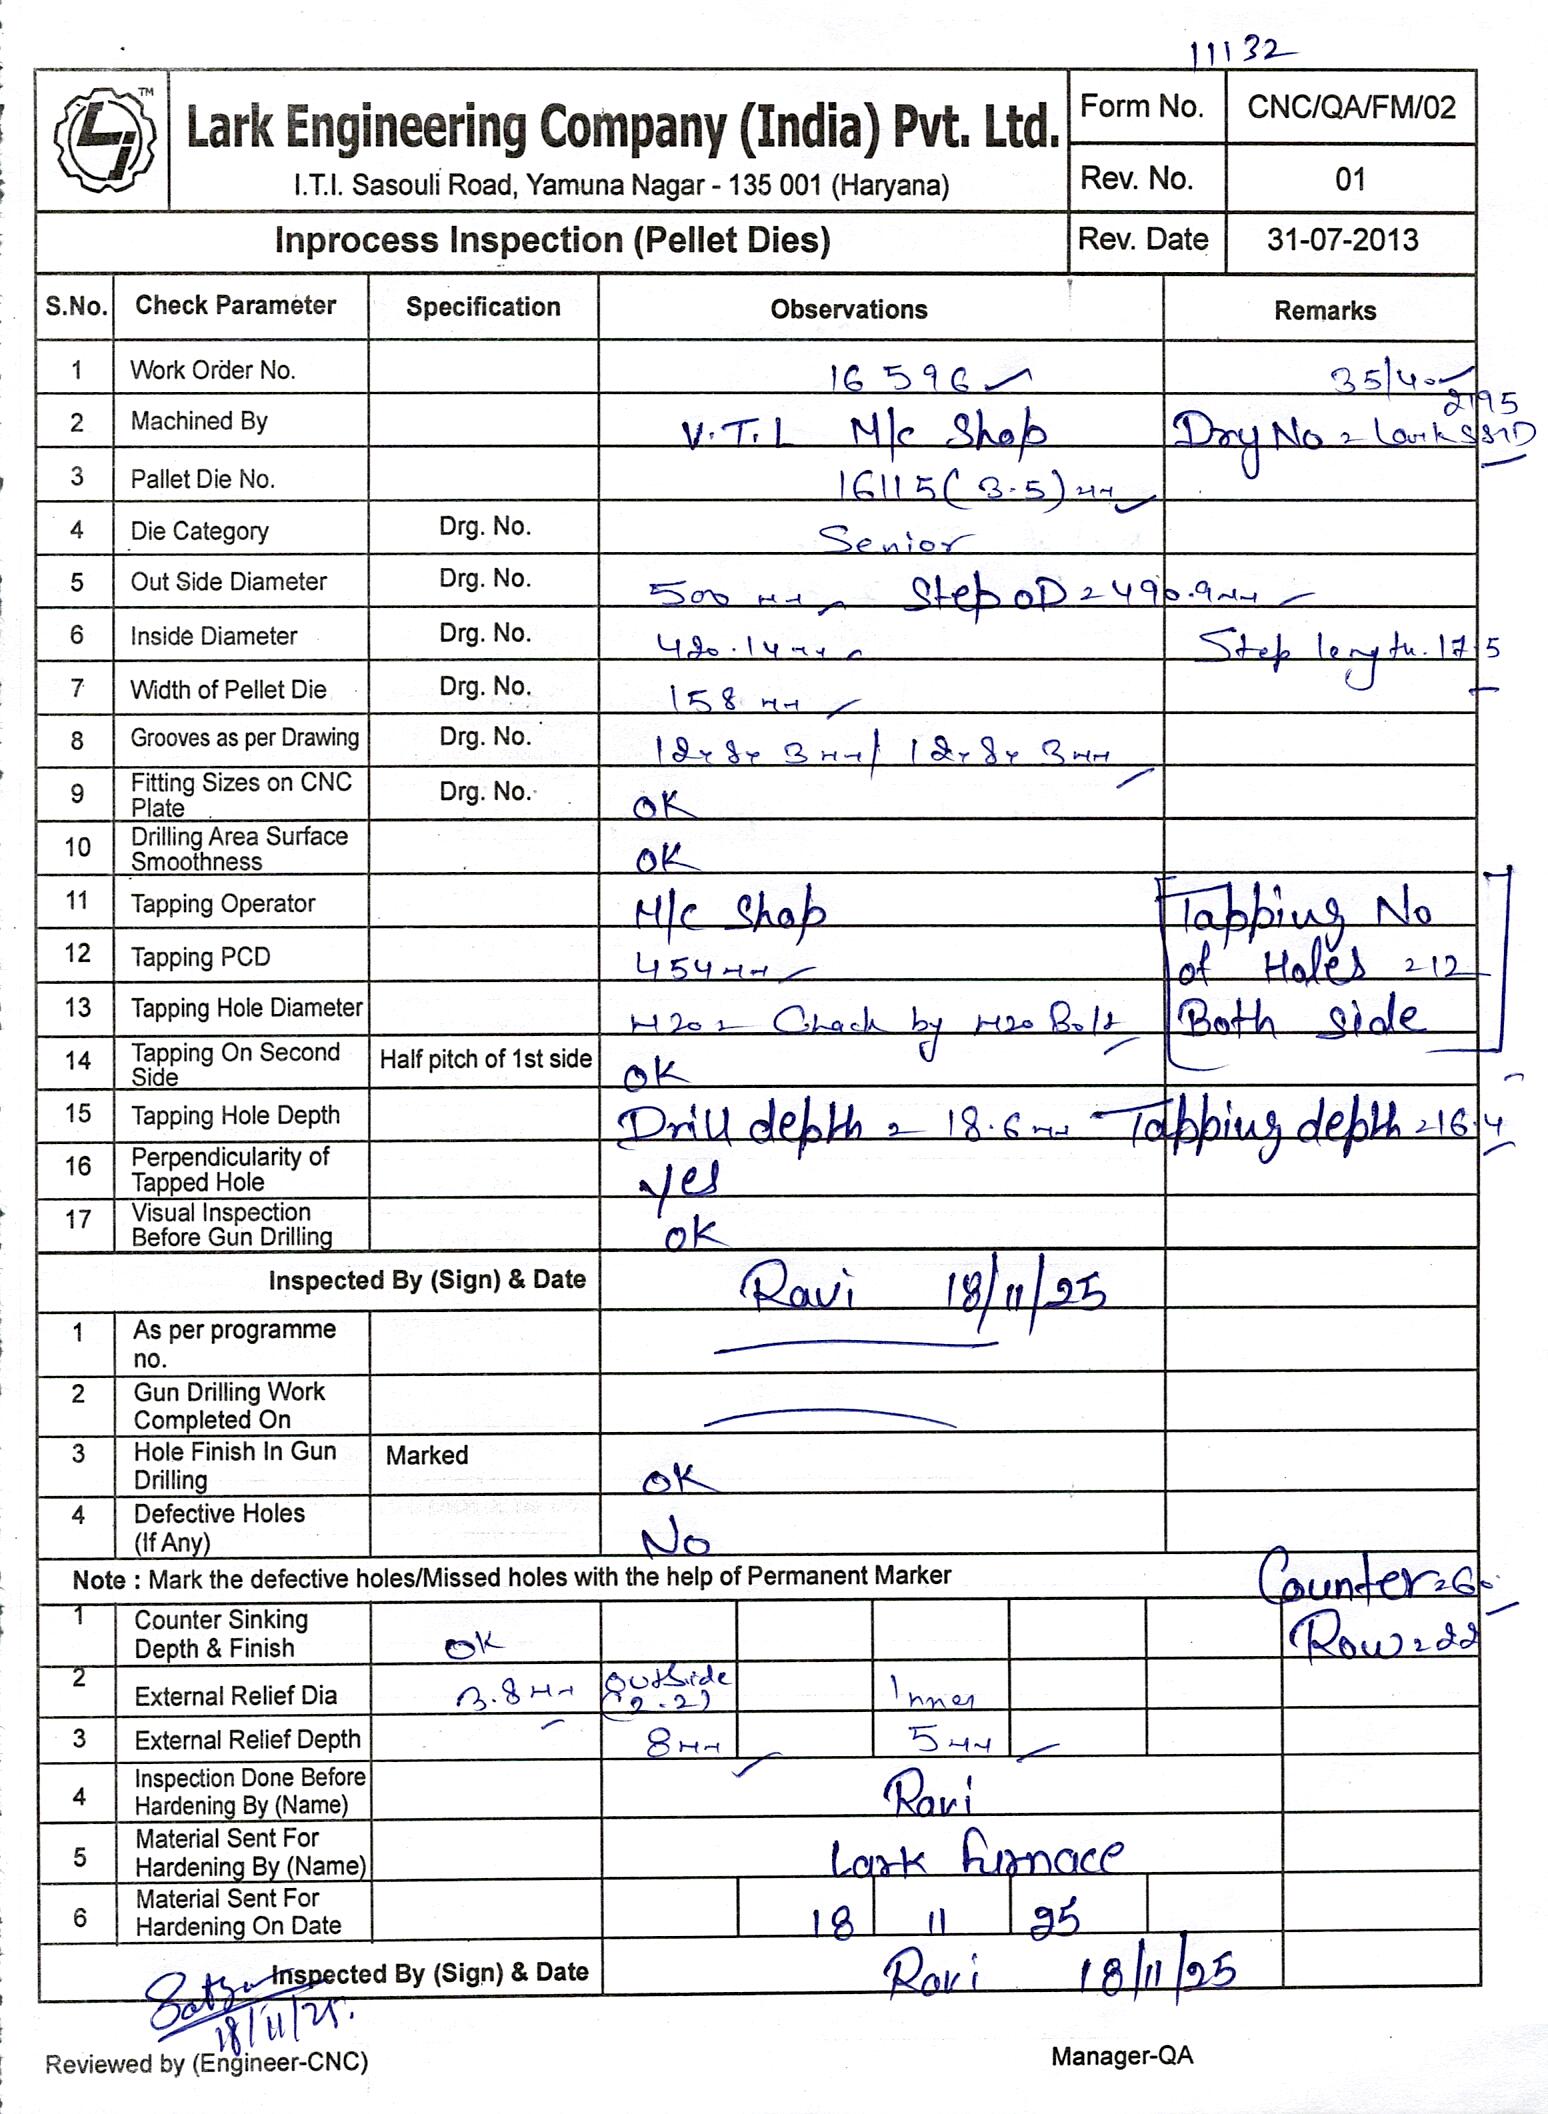 11132
TM
Lark Engineering Company (India) Pvt. Ltd.
I.T.I. Sasouli Road, Yamuna Nagar - 135 001 (Haryana)
Form No. CNC/QA/FM/02
Rev. No. 01
Inprocess Inspection (Pellet Dies) Rev. Date 31-07-2013
S.No. Check Parameter Specification Observations Remarks
1 Work Order No. 16596 35/40
2195
2 Machined By V.T.L M/c Shop Drg No = Lark
3 Pallet Die No. 16115 (3.5) mm
4 Die Category Drg. No. Senior
5 Out Side Diameter Drg. No. 500 mm Step OD = 490.9mm
6 Inside Diameter Drg. No. 420.14mm Step length. 17.5
7 Width of Pellet Die Drg. No. 158 mm
8 Grooves as per Drawing Drg. No. 12x8x3mm/ 12x8x3mm
9 Fitting Sizes on CNC Plate Drg. No. OK
10 Drilling Area Surface Smoothness OK
11 Tapping Operator M/c Shop Tapping No
12 Tapping PCD 454mm of Holes = 12
13 Tapping Hole Diameter M20 = Chack by M20 Bolt Both side
14 Tapping On Second Side Half pitch of 1st side OK
15 Tapping Hole Depth Drill depth = 18.6mm Tapping depth = 16.4
16 Perpendicularity of Tapped Hole yes
17 Visual Inspection Before Gun Drilling OK
Inspected By (Sign) & Date Ravi 18/11/25
1 As per programme no.
2 Gun Drilling Work Completed On
3 Hole Finish In Gun Drilling Marked OK
4 Defective Holes (If Any) No
Note : Mark the defective holes/Missed holes with the help of Permanent Marker Counter = 60
1 Counter Sinking Depth & Finish OK Row = 22
2 External Relief Dia 3.8mm Outside (2.2) Inner
3 External Relief Depth 8mm 5mm
4 Inspection Done Before Hardening By (Name) Ravi
5 Material Sent For Hardening By (Name) Lark furnace
6 Material Sent For Hardening On Date 18 11 25
Inspected By (Sign) & Date Ravi 18/11/25
18/11/25.
Reviewed by (Engineer-CNC) Manager-QA